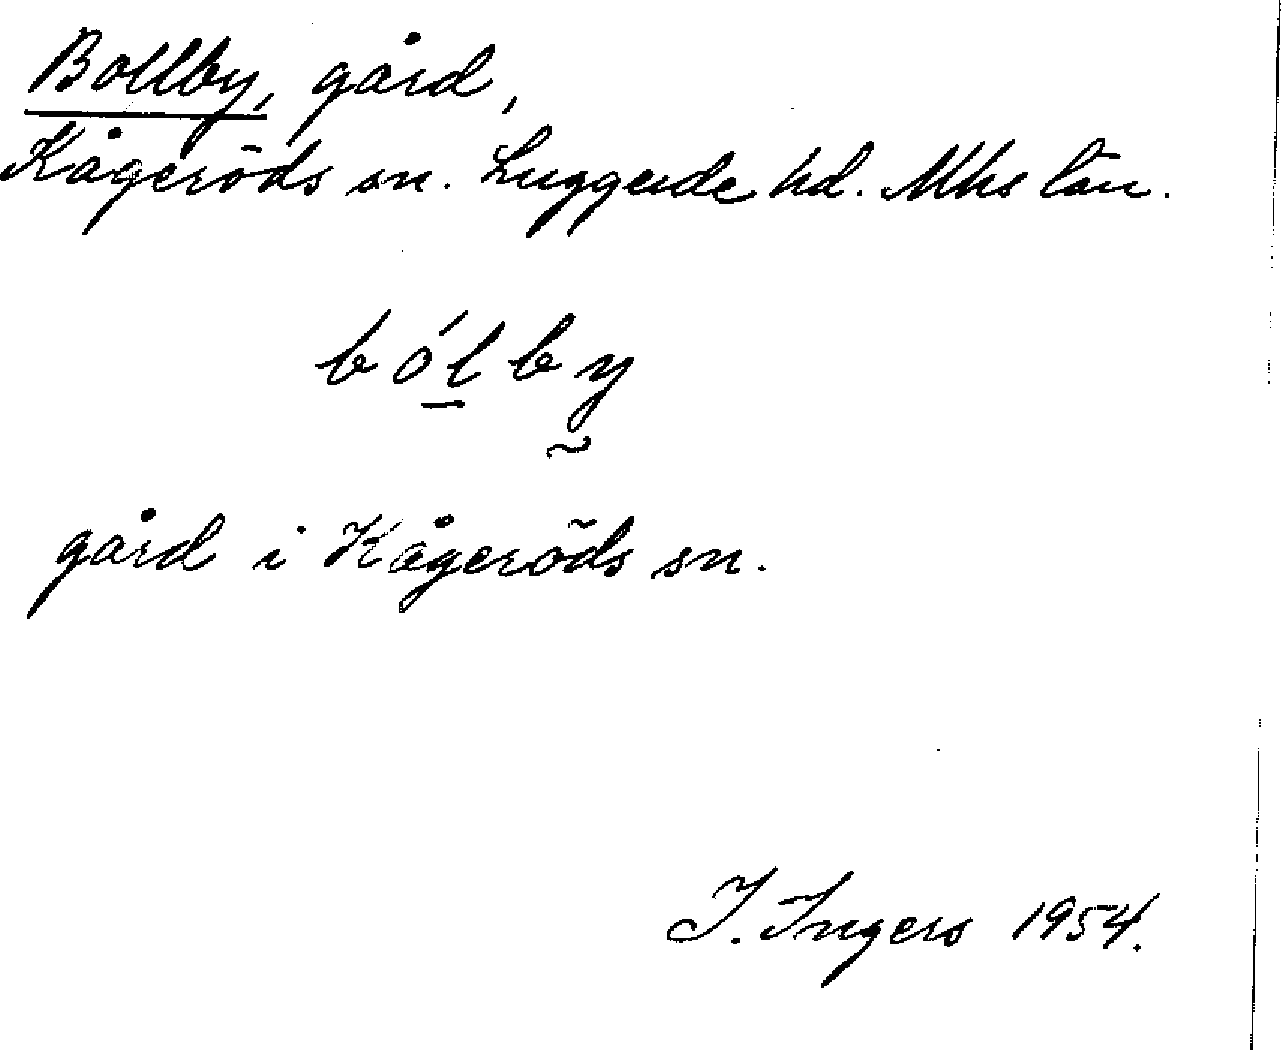 Bollby, gård,
Kågeröds sn. Luggude hd. Mhs län.
bólby
gård i Kågeröds sn.
I. Ingers 1954.